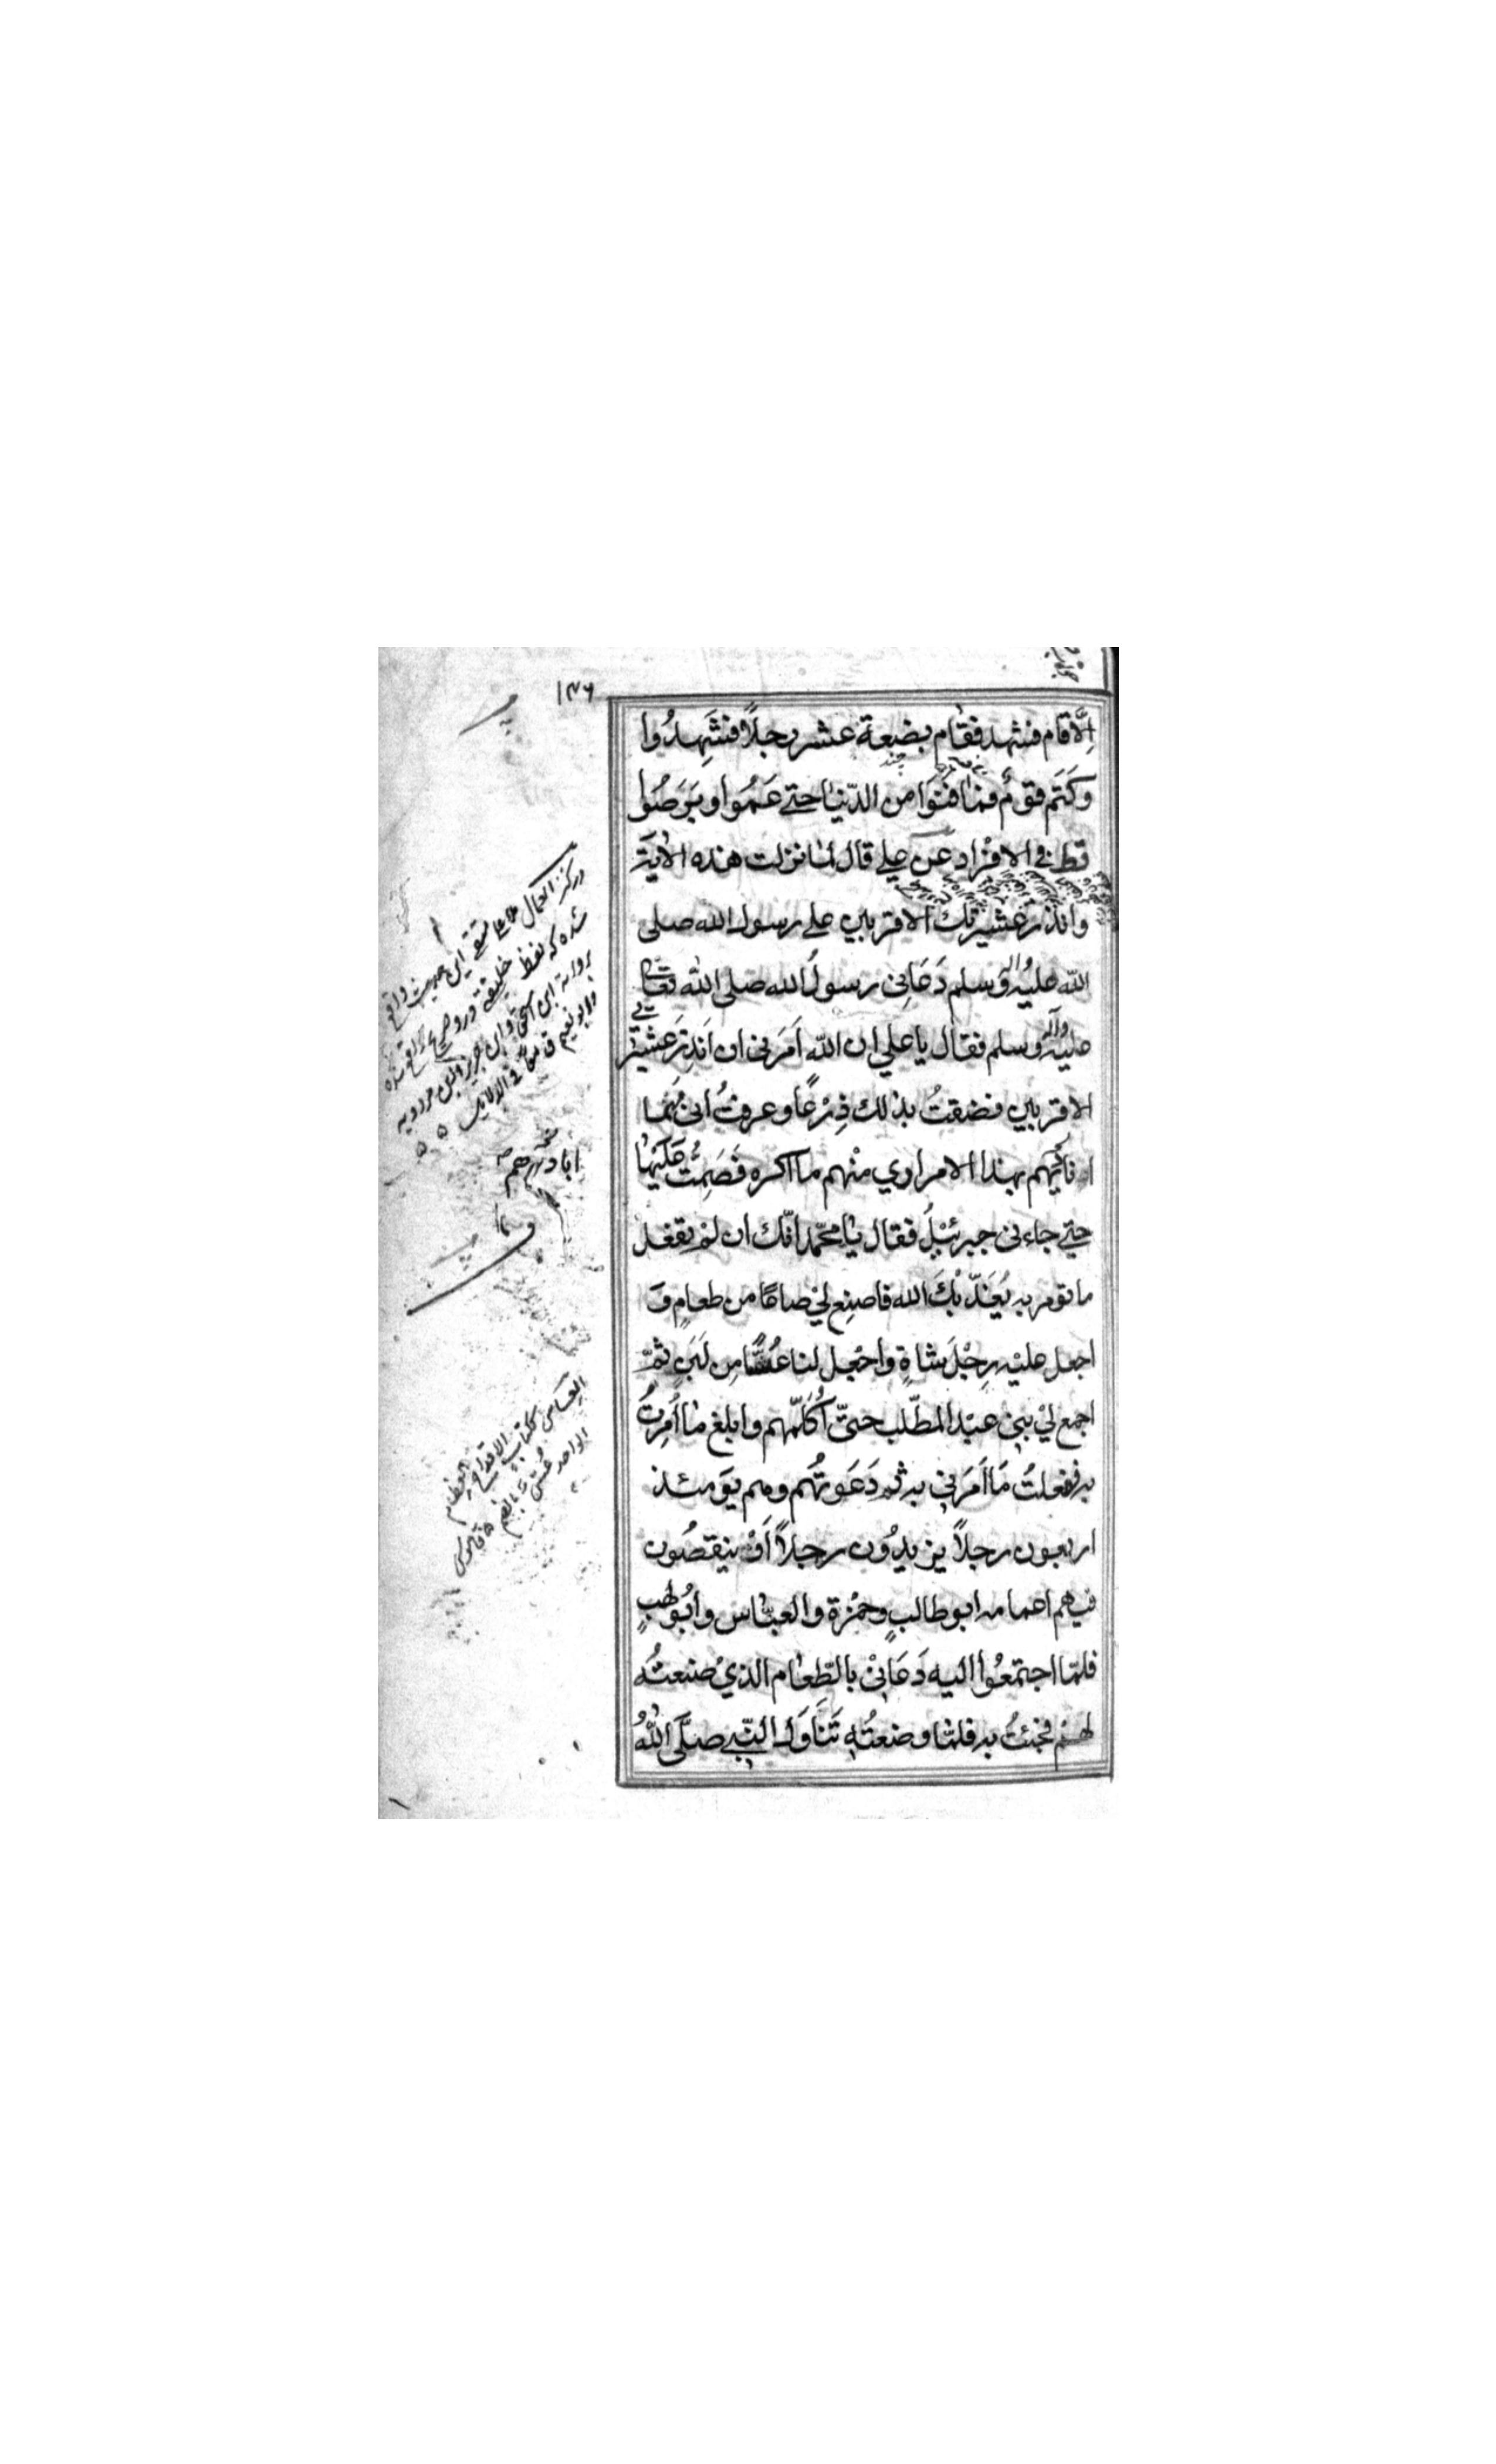 ۱۴۶
اِلّا قام فشهد فقام بضعة عشر رجلًا فشَهِدُوا
وَكَتَم قومٌ فما فنَوا من الدّنيا حتے عَمُوا و بَرَصُوا
قط في الافراد عن علے قال لما نزلت هذه الاية
وانذر عشيرتك الاقربين علے رسول الله صلى
الله عليه واله وسلم دَعَاني رسولُ الله صلى الله تعالے
عليه واله وسلم فقال يا علي ان الله اَمَرَني ان اَنذِرَ عشيرتي
الاقربين فضقتُ بذلك ذِرْعًا وعرفتُ انى مهما
اناديهم بهذا الامر اري منهم ما اكره فَصَمِتُّ عَلَيْها
حتے جاءنى جبرئيلُ فقال يا محمّد انّك ان لم تفعل
ما تومر به يُعَذّبْكَ الله فاصنع لي صاعًا من طعامٍ وَ
اجعل عليه رِجْلَ شاةٍ واجْعل لنا عُسًّا مِن لَبَنٍ ثمّ
اجمع لي بني عبد المطّلب حتّى اُكَلّمهم وابلغ ما اُمِرتُ
به ففعلتُ مَا اَمَرَني به ثم دَعَوتُهم وهم يومئذ
اربعون رجلاً يزيدُون رجلاً اَوْ ينقصُون
فيهم اعمامه ابو طالبٍ وحمزة والعبّاس وابُو لهبٍ
فلمّا اجتمعُوا اليه دَعَانيْ بالطّعام الذيْ صنعتُه
لهم فجئتُ به فلمّا وضعتُه تَنَاوَل النّبي صلَّى اللهُ
دركنز العمال
شده که لفظ خليفة
العساس ككتاب الاقداح العظام
الواحد عُسّ بالضم قاموس